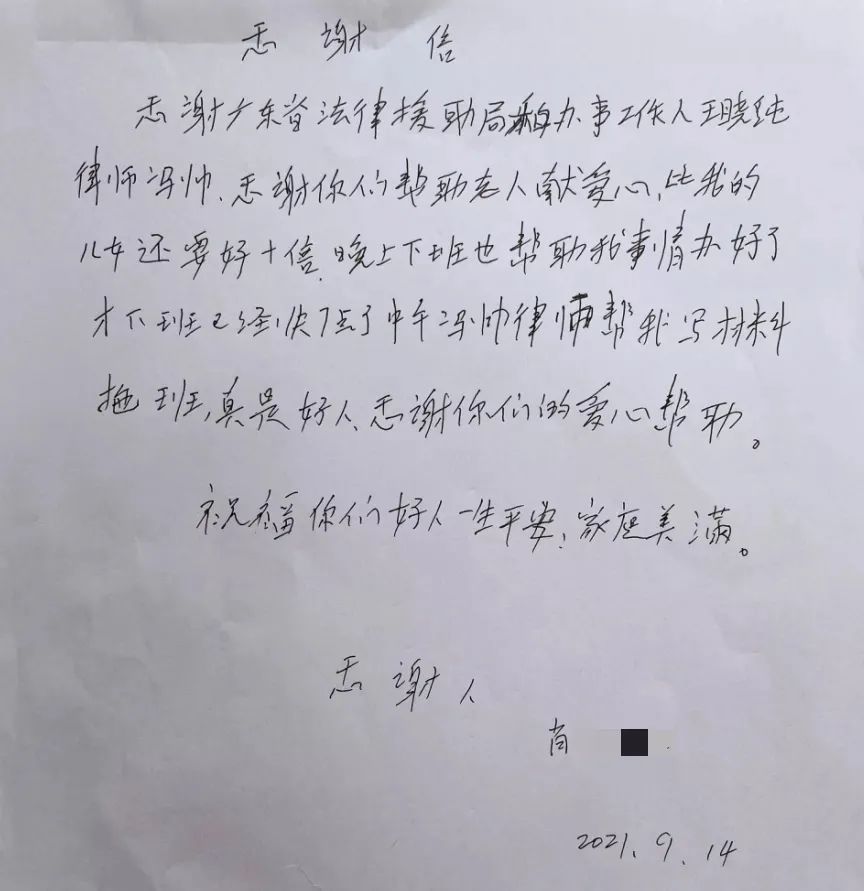 忎谢 信
忎谢广东省法律援助局和办事工作人王晓纯
律师冯帅、忎谢你们帮助老人献爱心,比我的
儿女还要好十倍.晚上下班也帮助我事情办好了
才下班已经快7点了中午冯帅律师帮我写材料
拖班,真是好人、忎谢你们的爱心帮助。
祝福你们好人一生平安,家庭美满。
忎谢人
肖
2021.9.14